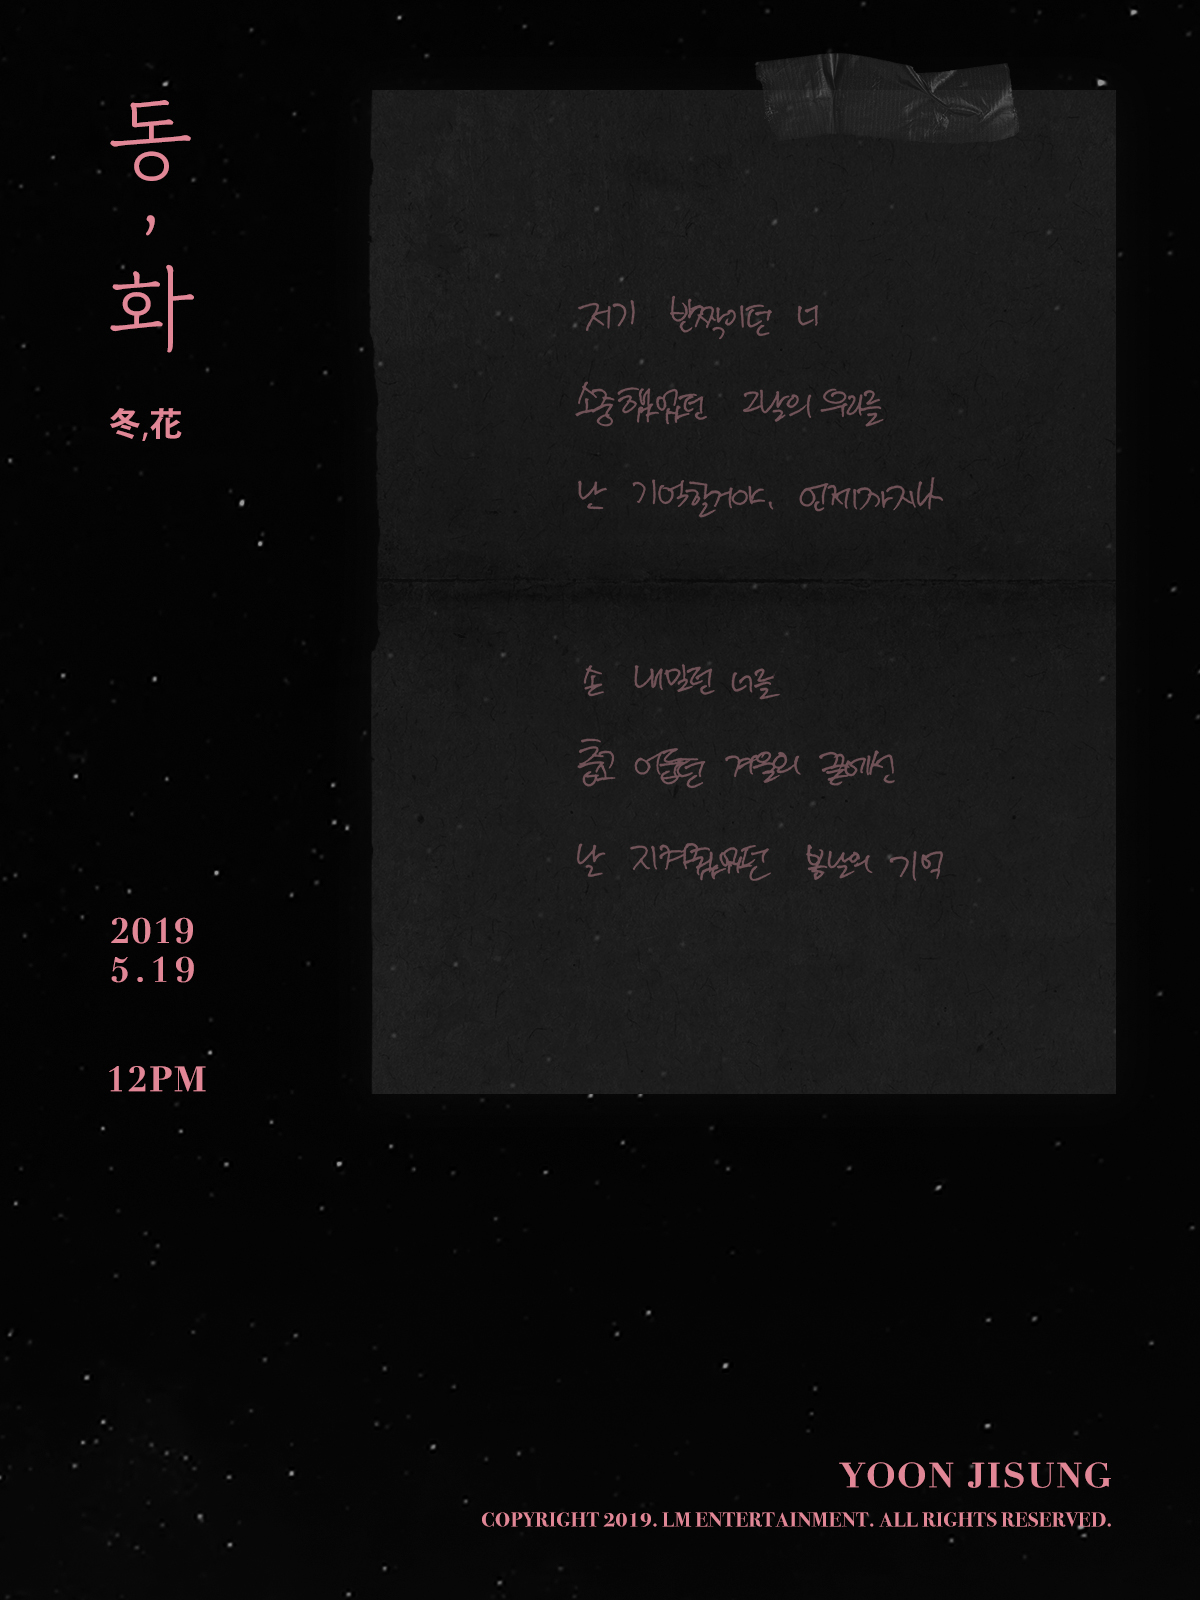 동
,
화
冬,花
저기 반짝이던 너
소중했었던 그날의 우리를
난 기억할거야, 언제까지나
손 내밀던 너를
춥고 어둡던 겨울의 끝에선
날 지켜줬었던 봄날의 기억
2019
5.19
12PM
YOON JISUNG
COPYRIGHT 2019. LM ENTERTAINMENT. ALL RIGHTS RESERVED.